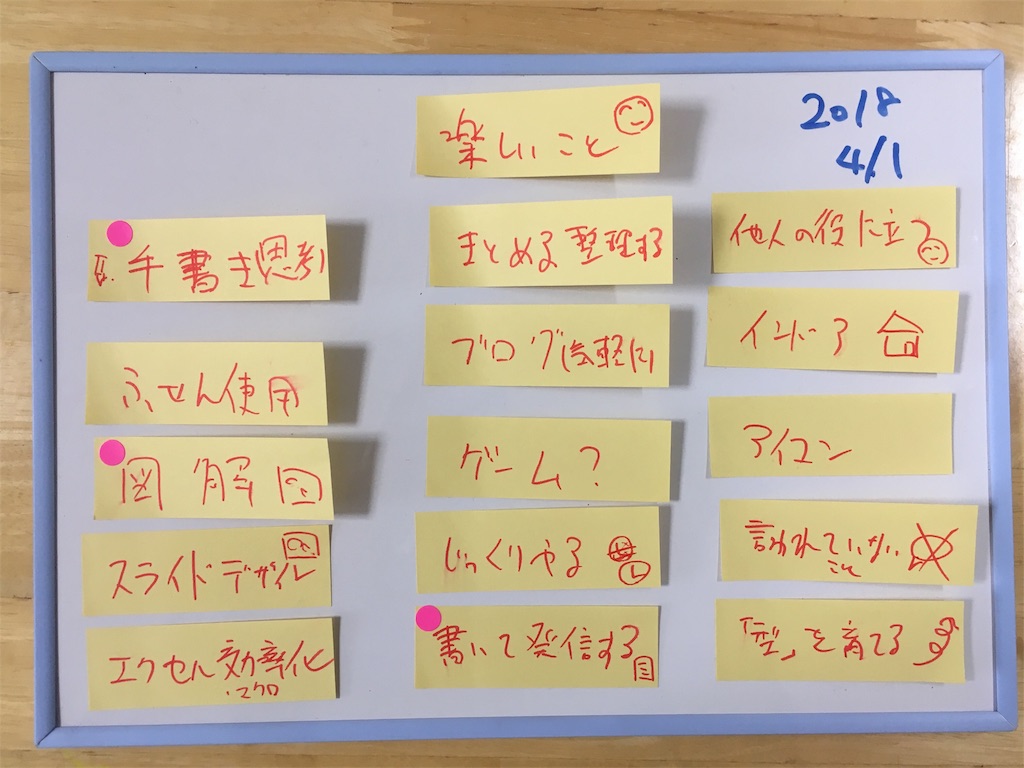 楽しいこと
2018
4/1
手書き思考
ふせん使用
図解
スライドデザイン
エクセル効率化
・マクロ
まとめる整理する
ブログ気軽に
ゲーム?
じっくりやる
書いて発信する
他人の役に立つ
インドア
アイコン
言われていない
こと
「型」を育てる